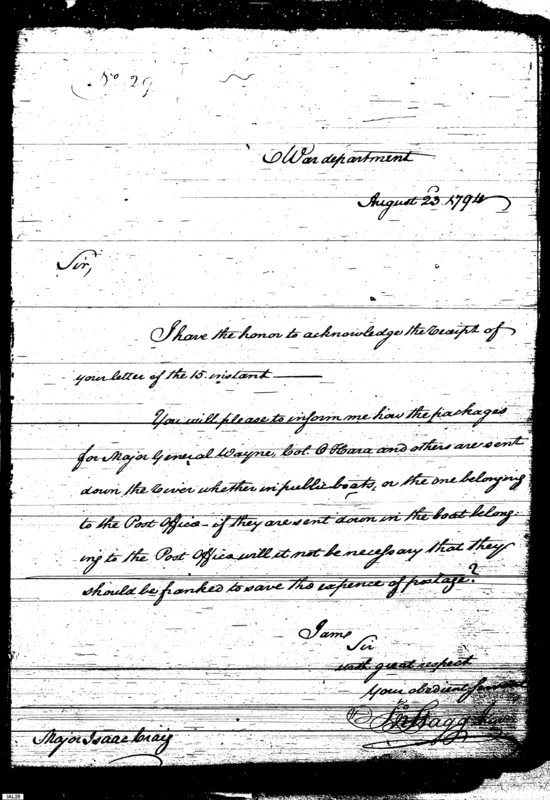 No 29
War department
August 23. 1794
Sir,
I have the honor to acknowledge the receipt of
your letter of the 15. instant
You will please to inform me how the packages
for Major General Wayne, Col. O Hara and others are sent
down the river whether in public boats, or the one belonging
to the Post Office - if they are sent down in the boat belong-
ing to the Post Office will it not be necessary that they
should be franked to save the expence of postage?
I am
Sir
with great respect
your obedient Servant
Major Isaac Craig
IAL29